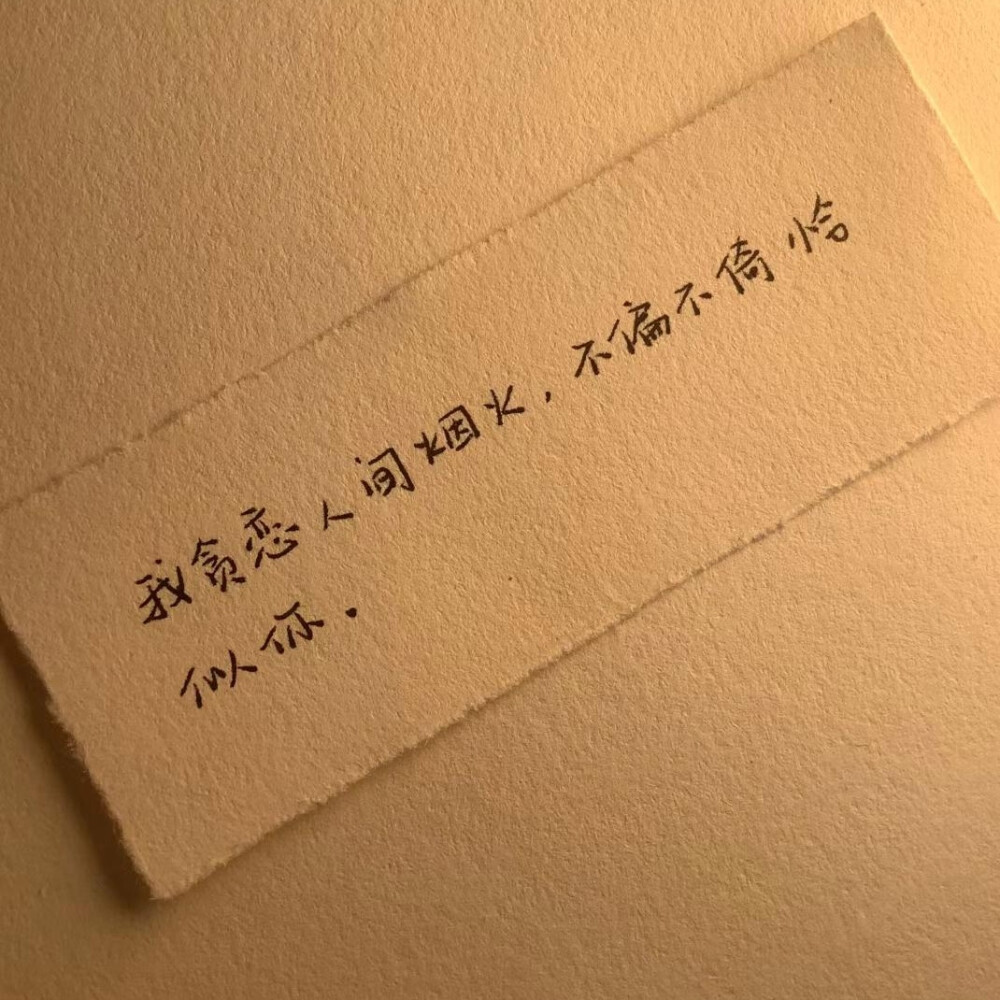 我贪恋人间烟火，不偏不倚恰
似你.